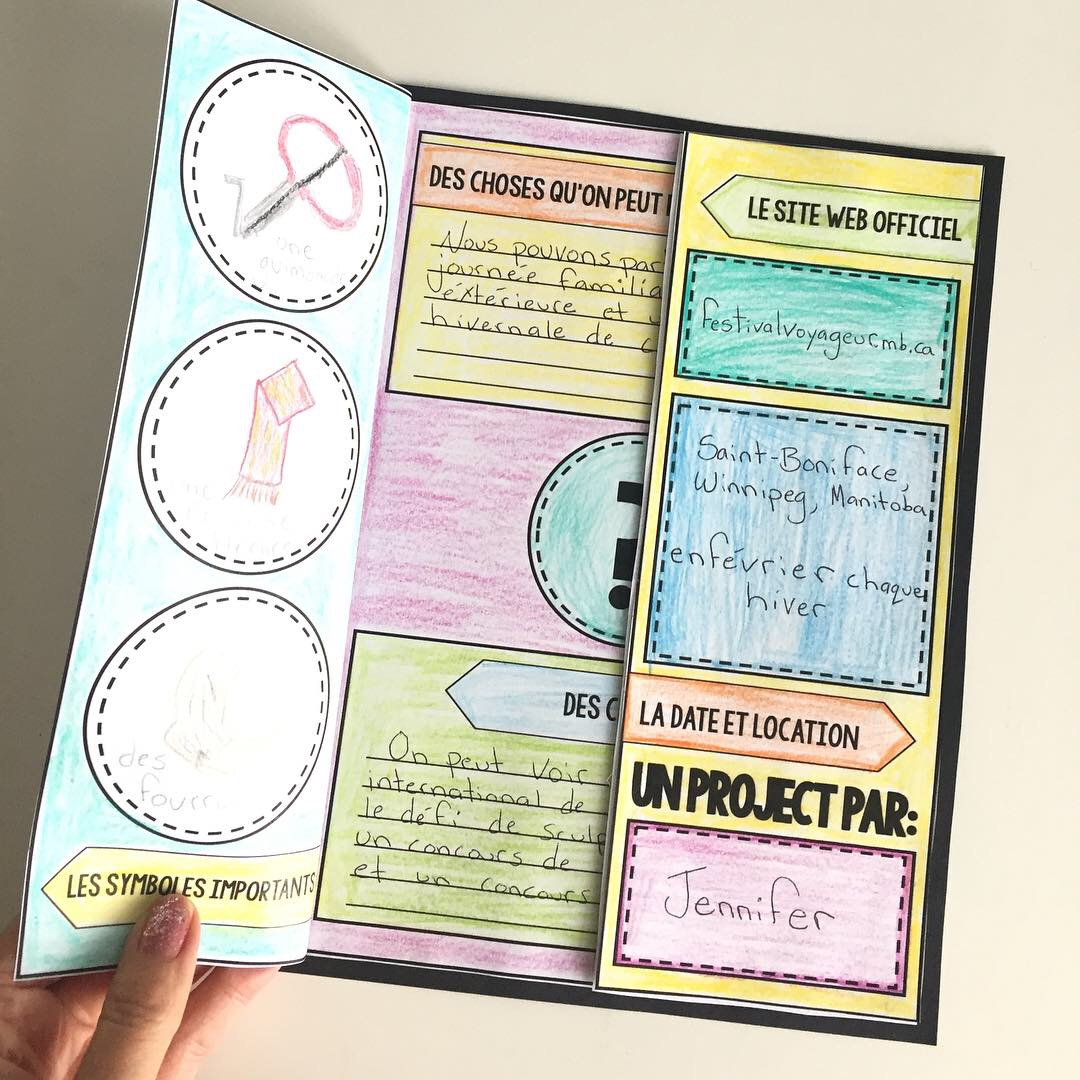 une
des
LES SYMBOLES IMPORTANTS
DES CHOSES QU'ON PEUT
Nous pouvons par
journée familia
l'éxtérieure et
hivernale de c
DES C
On peut voir
international de
le défi de sculp
un concours de
et un concours
LE SITE WEB OFFICIEL
festivalvoyageur.mb.ca
Saint-Boniface,
Winnipeg, Manitoba
en février chaque
hiver
LA DATE ET LOCATION
UN PROJECT PAR:
Jennifer